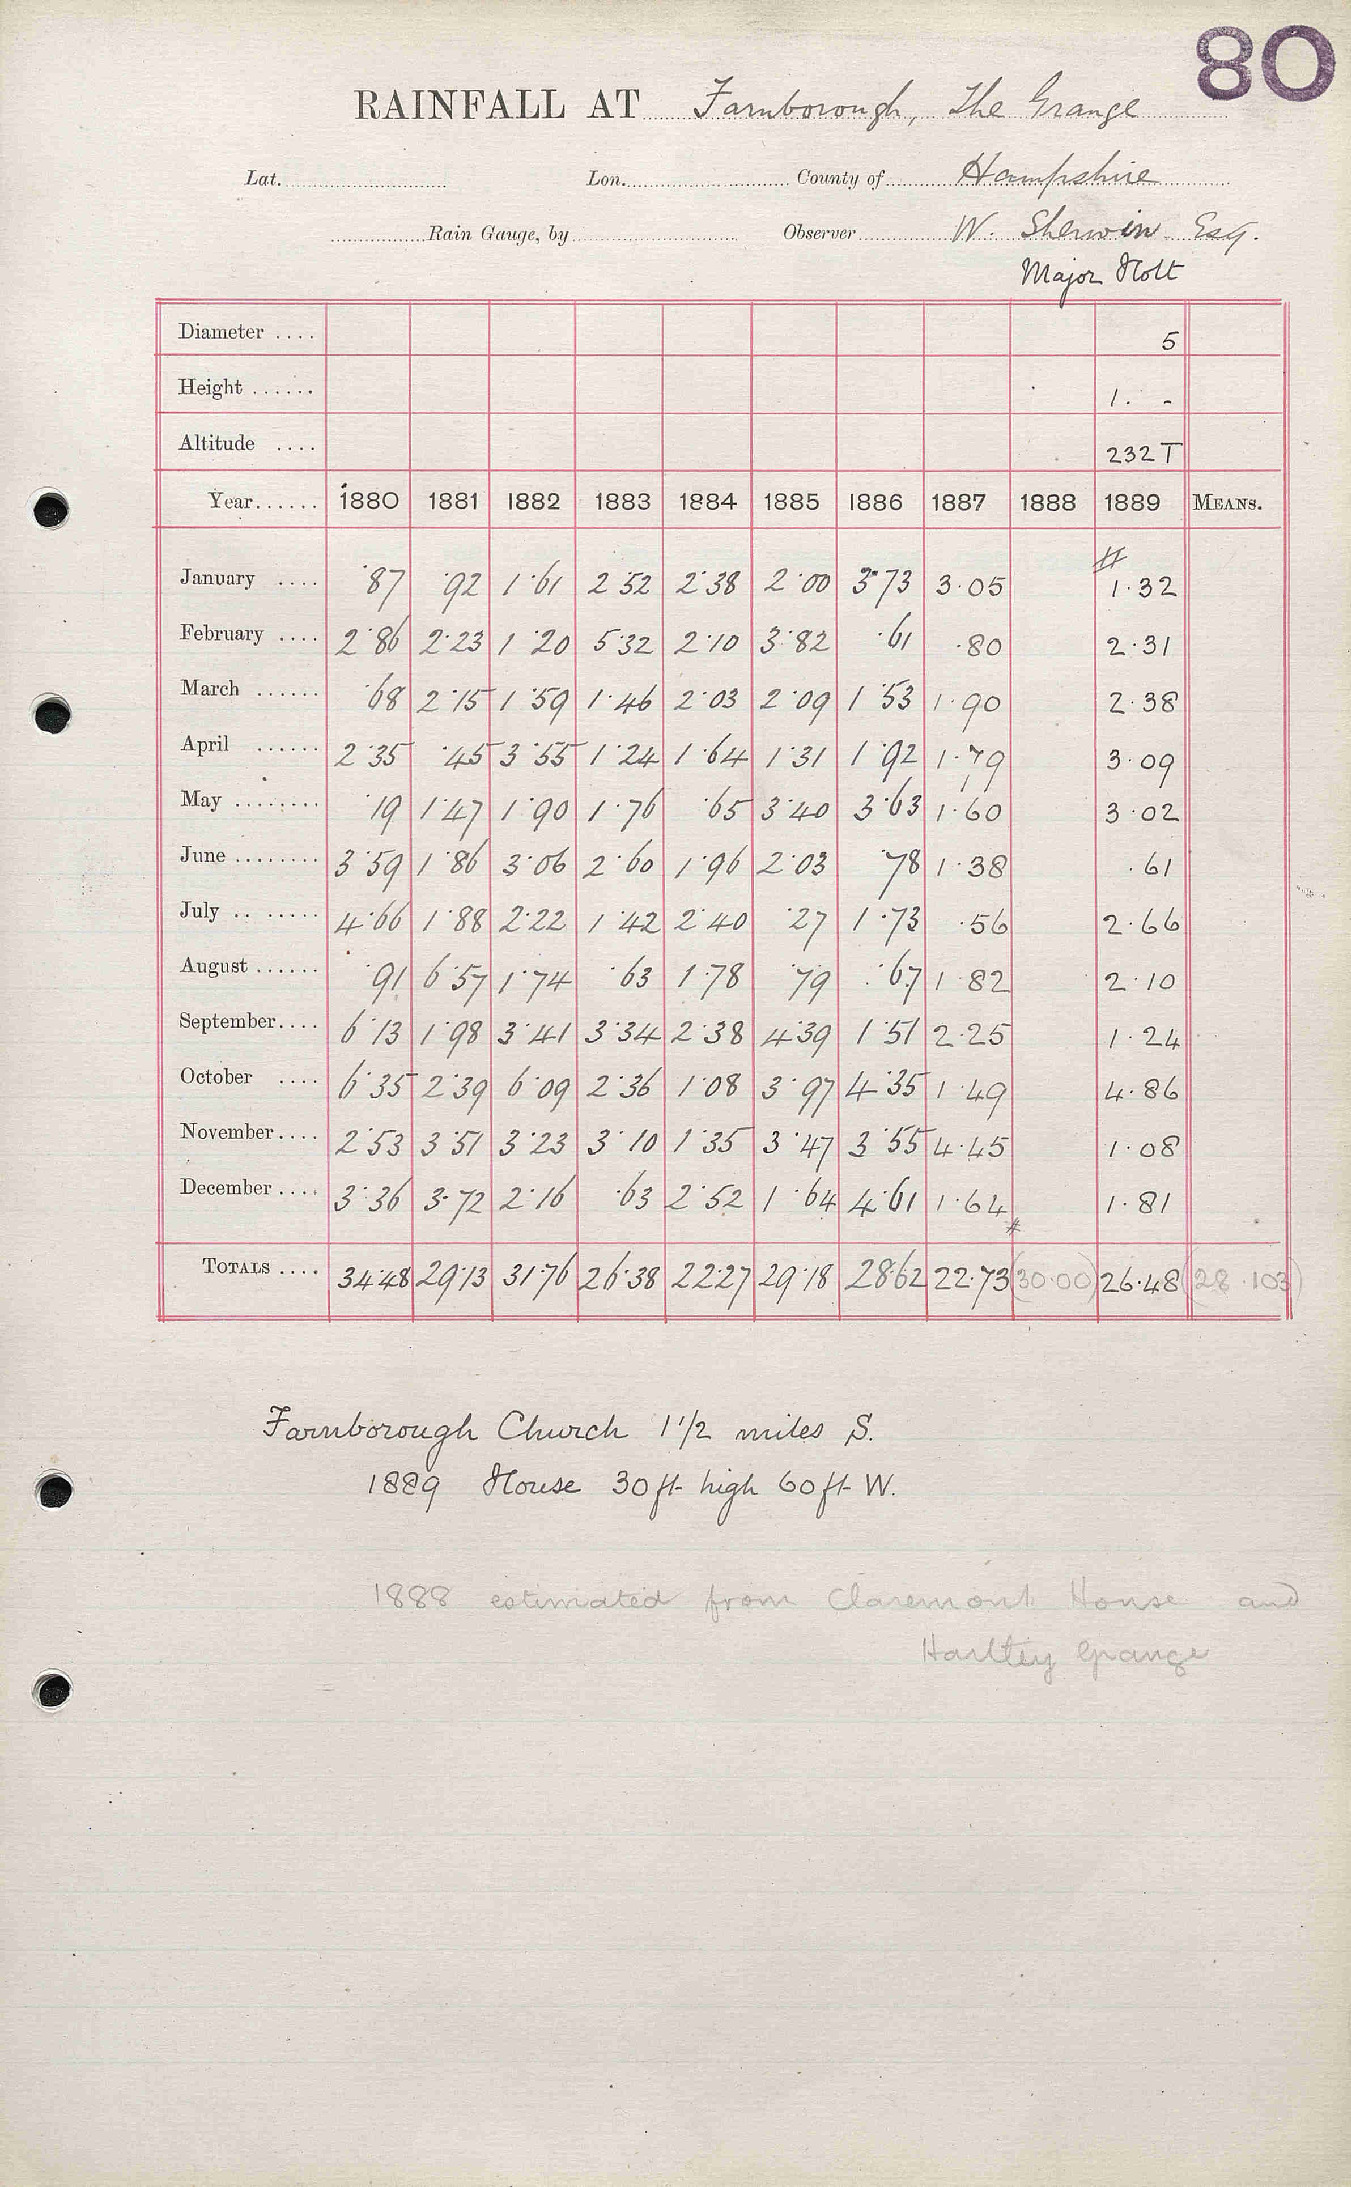 80
RAINFALL AT Farnborough, The Grange
Lat. Lon. County of Hampshire
Rain Gauge, by Observer W. Sherwin Esq.
Major Holt
Diameter .... 5
Height ...... 1. -
Altitude .... 232 T
Year...... 1880 1881 1882 1883 1884 1885 1886 1887 1888 1889 MEANS.
#
January .... ·87 ·92 1·61 2·52 2·38 2·00 3·73 3·05 1·32
February .... 2·86 2·23 1·20 5·32 2·10 3·82 ·61 ·80 2·31
March ...... ·68 2·15 1·59 1·46 2·03 2·09 1·53 1·90 2·38
April ...... 2·35 ·45 3·55 1·24 1·64 1·31 1·92 1·79 3·09
May ........ ·19 1·47 1·90 1·76 ·65 3·40 3·63 1·60 3·02
June ........ 3·59 1·86 3·06 2·60 1·96 2·03 ·78 1·38 ·61
July .. ...... 4·66 1·88 2·22 1·42 2·40 ·27 1·73 ·56 2·66
August ...... ·91 6·57 1·74 ·63 1·78 ·79 ·67 1·82 2·10
September.... 6·13 1·98 3·41 3·34 2·38 4·39 1·51 2·25 1·24
October .... 6·35 2·39 6·09 2·36 1·08 3·97 4·35 1·49 4·86
November.... 2·53 3·51 3·23 3·10 1·35 3·47 3·55 4·45 1·08
December .... 3·36 3·72 2·16 ·63 2·52 1·64 4·61 1·64 1·81
#
TOTALS .... 34·48 29·13 31·76 26·38 22·27 29·18 28·62 22·73 (30·00) 26·48 (28·103)
Farnborough Church 1 1/2 miles S.
1889 House 30 ft high 60 ft W.
1888 estimated from Claremont House and
Hartley Grange